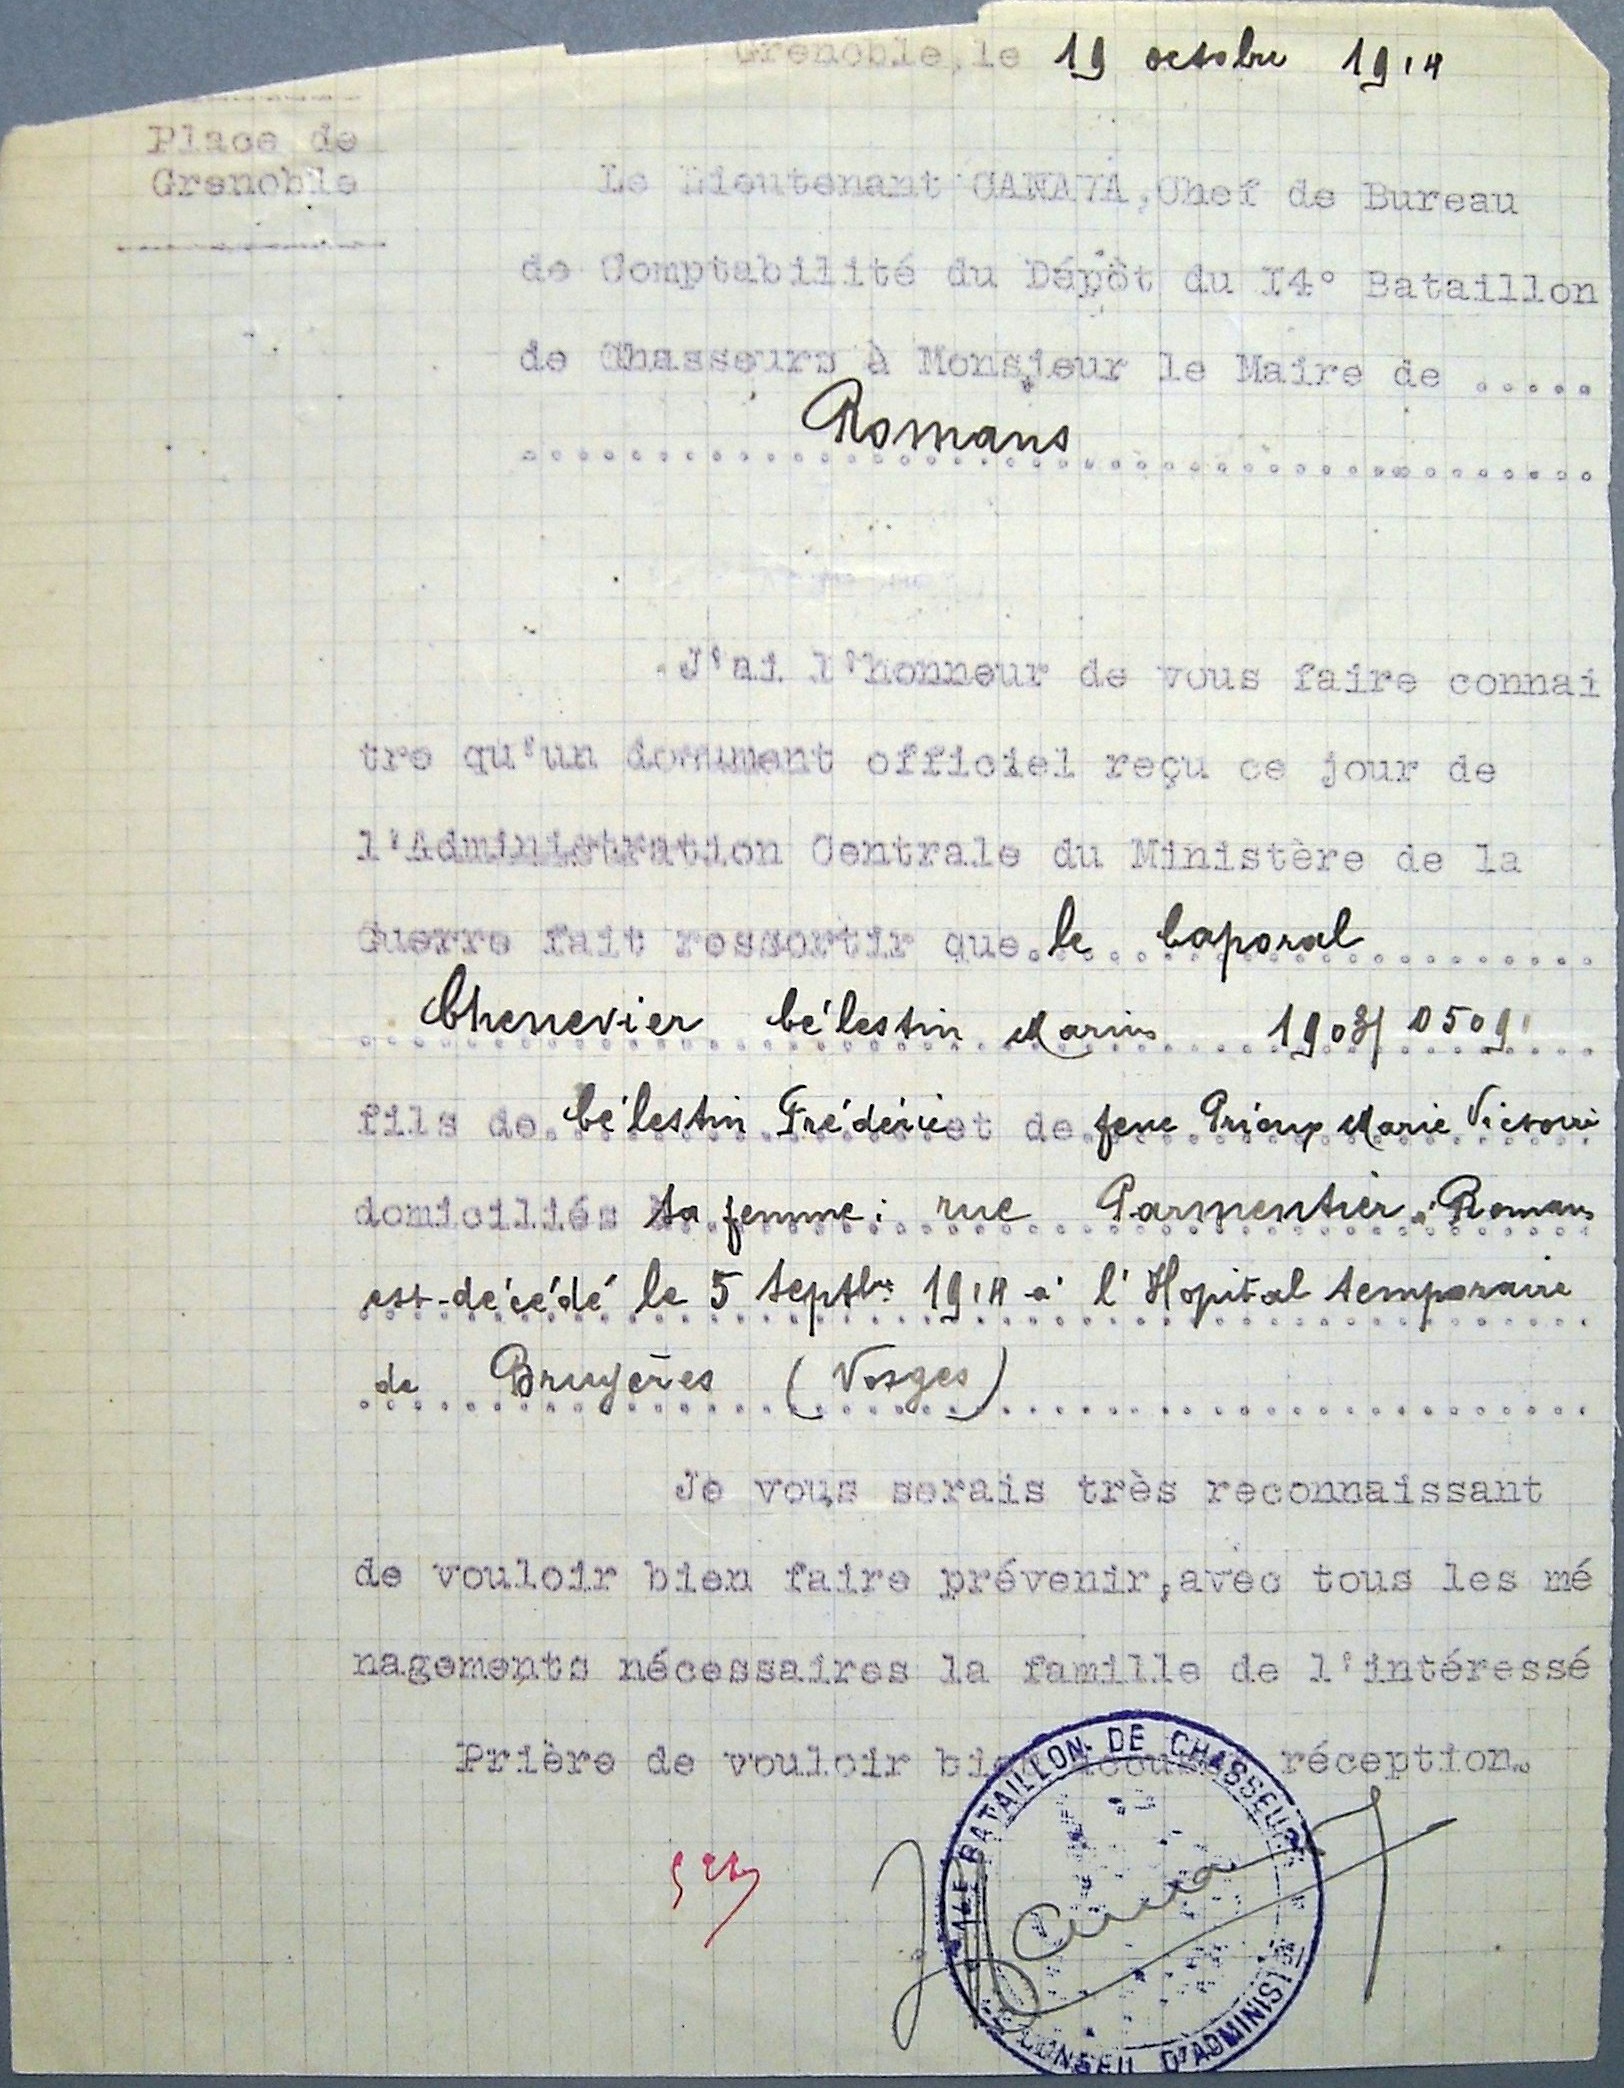 Grenoble, le 19 octobre 1914
Place de
Grenoble
Le Lieutenant CANAVA, Chef de Bureau
de Comptabilité du Dépôt du 14° Bataillon
de Chasseurs à Monsieur le Maire de .....
Romans
J'ai l'honneur de vous faire connai
tre qu'un document officiel reçu ce jour de
l'Administration Centrale du Ministère de la
Guerre fait ressortir que le Caporal
Chenevier Célestin Marius
fils de Célestin Frédéric et de feue Marie Victoire
domiciliés sa femme : rue Parmentier à Romans
est décédé le 5 Septbre 1914 à l'Hopital temporaire
de Bruyères (Vosges)
Je vous serais très reconnaissant
de vouloir bien faire prévenir, avec tous les mé
nagements nécessaires la famille de l'intéressé
Prière de vouloir bien accuser réception.
14E BATAILLON DE CHASSEURS
CONSEIL D'ADMINIST